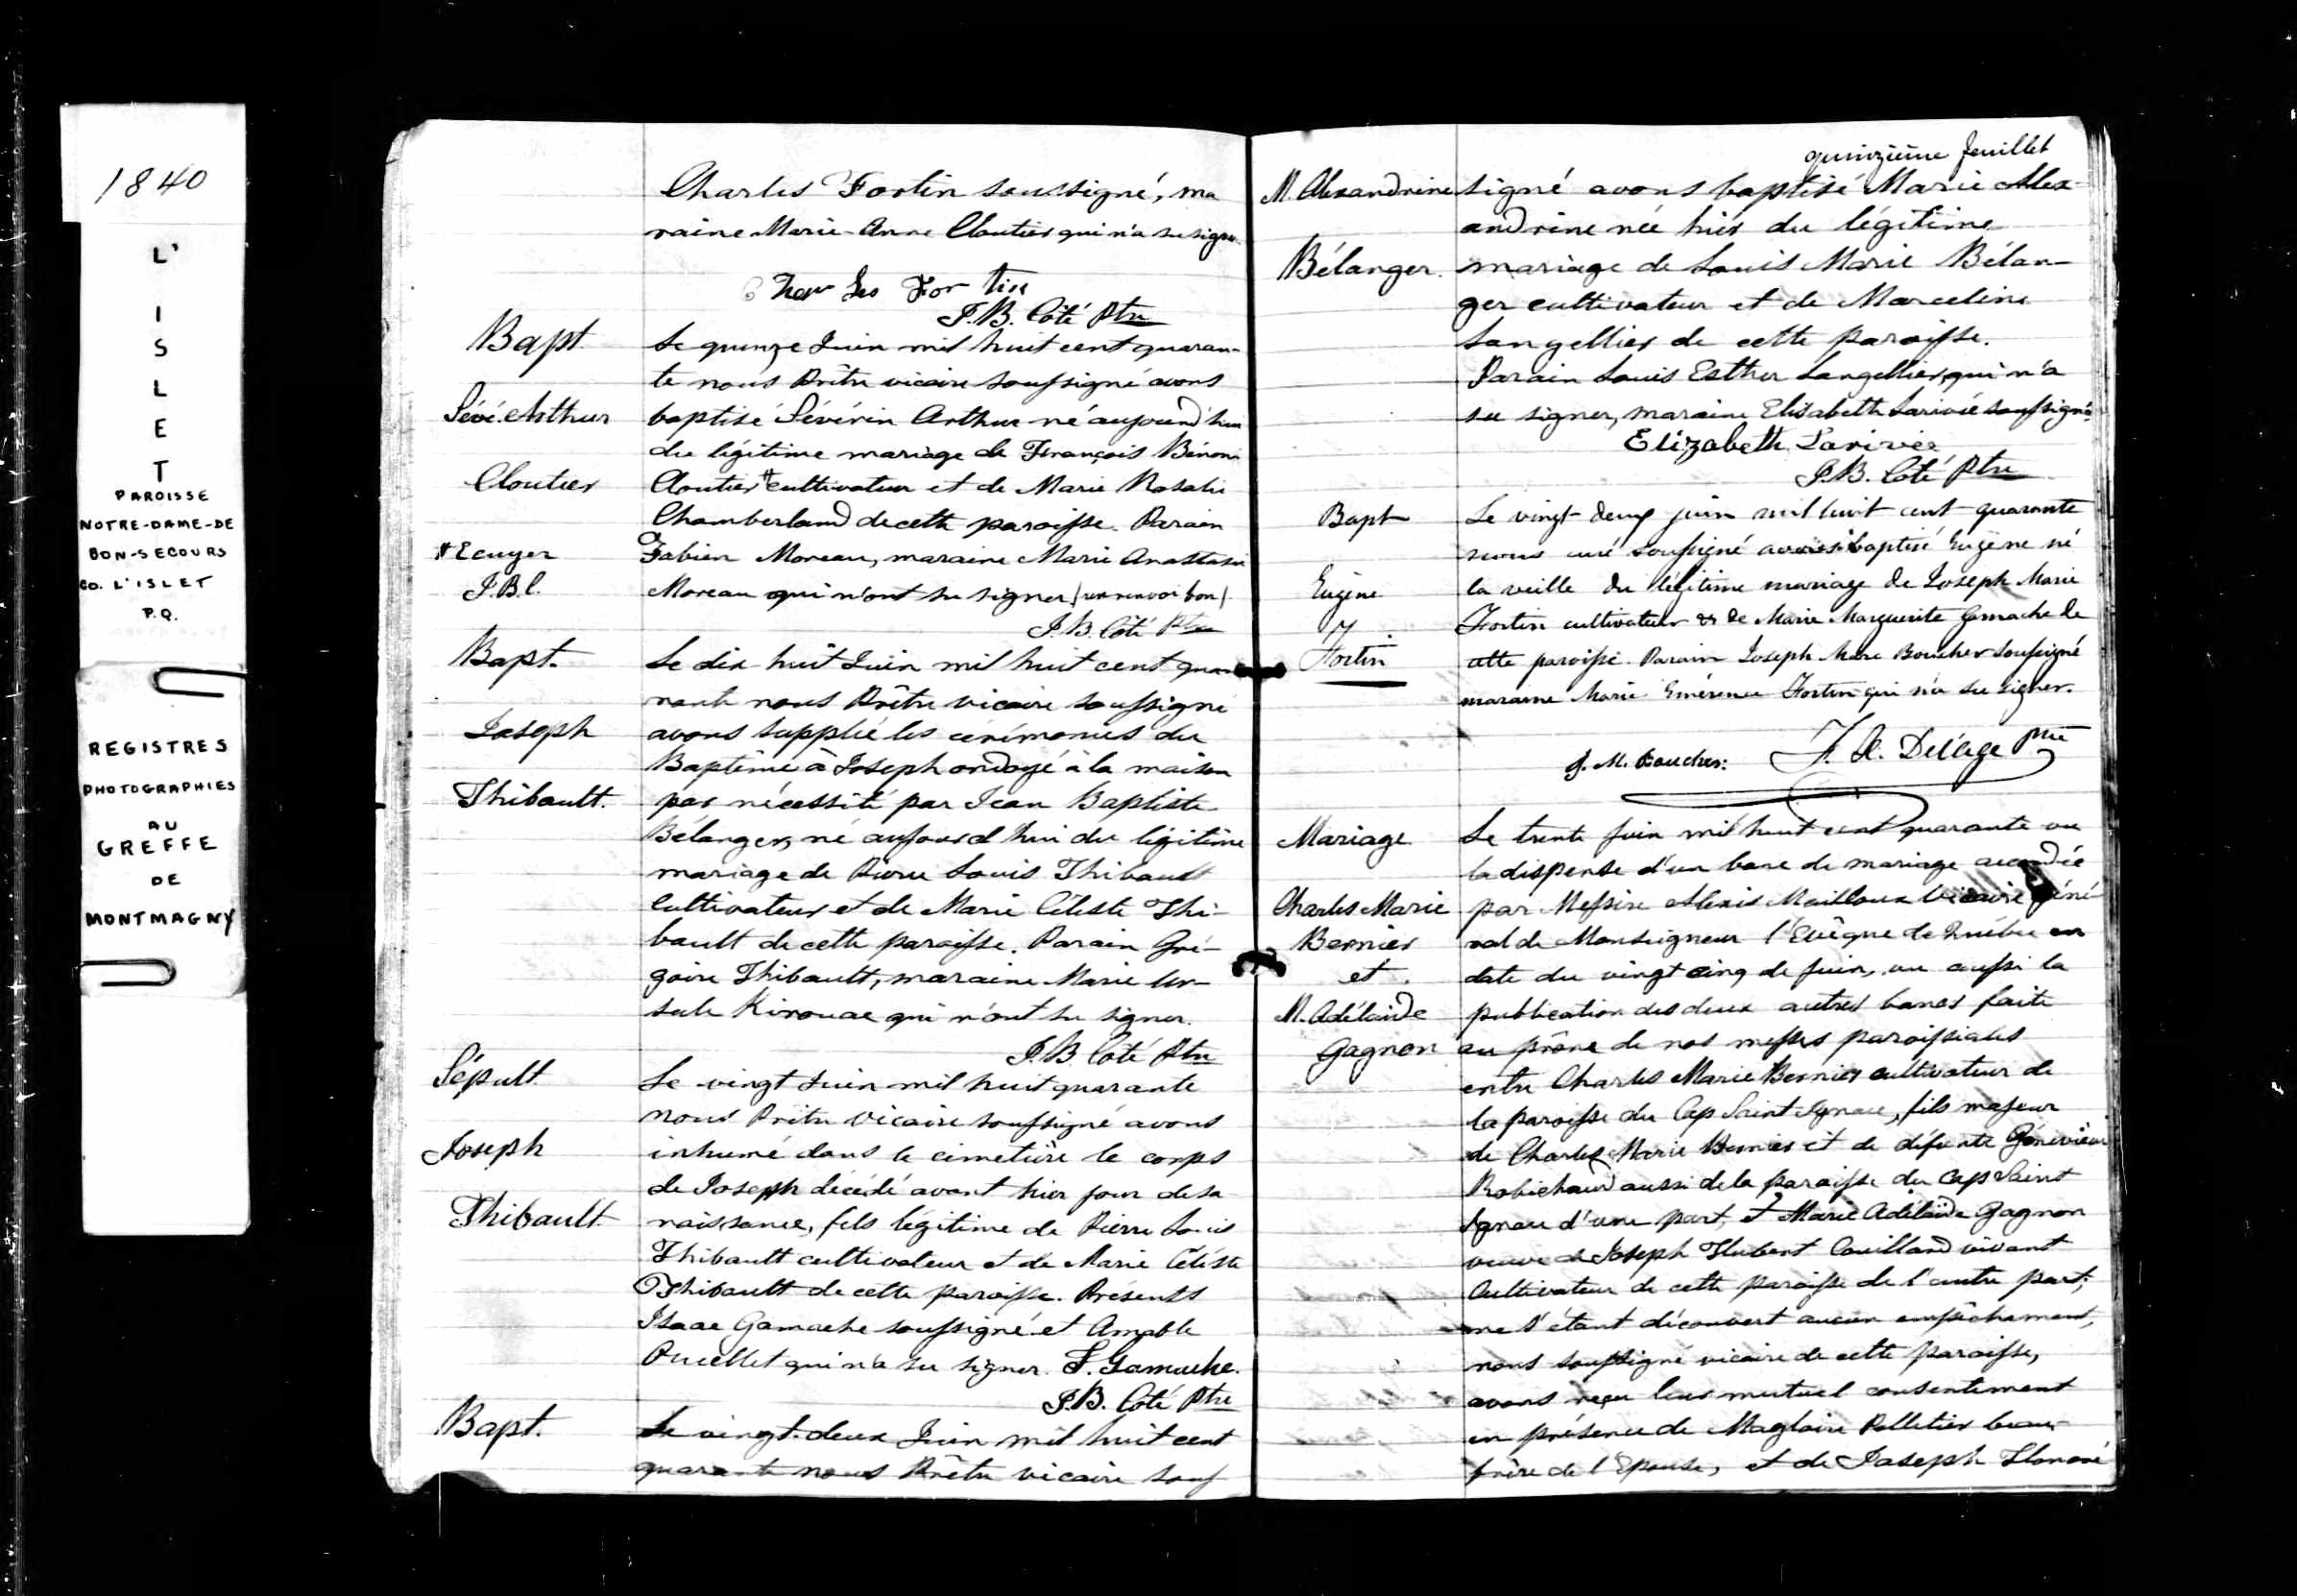 1840
L'
I
S
L
E
T
PAROISSE
NOTRE-DAME-DE
BON-SECOURS
CO. L'ISLET
P.Q.
REGISTRES
PHOTOGRAPHIES
AU
GREFFE
DE
MONTMAGNY
Charles Fortin soussigné, ma
raine Marie-Anne Cloutier qui n'a su signer
Char les For tin
J.B. Côté Ptre
Bapt. Le quinze Juin mil huit cent quaran-
te nous Prêtre vicaire soussigné avons
Sévé. Arthur baptisé Sévérin Arthur né aujourd'hui
du légitime mariage de François Bénoni
Cloutier Cloutier # cultivateur et de Marie Rosalie
Chamberland de cette paroisse. Parain
# Ecuyer Fabien Moreau, maraine Marie Anastasie
J.B.C. Moreau qui n'ont su signer / un renvoi bon /
J.B. Côté Ptre
Bapt. Le dix huit Juin mil huit cent qua
rante nous Prêtre vicaire soussigné
Joseph avons supplié les cérémonies du
Baptême à Joseph ondoyé à la maison
Thibault. par nécessité par Jean Baptiste
Bélanger, né aujourd'hui du légitime
mariage de Pierre Louis Thibault
Cultivateur et de Marie Céleste Thi-
bault de cette paroisse. Parain Gré-
goire Thibault, maraine Marie Ur-
sule Kirouac qui n'ont su signer.
J.B. Côté Ptre
Sépult. Le vingt Juin mil huit quarante
nous Prêtre Vicaire soussigné avons
Joseph inhumé dans le cimetière le corps
de Joseph décédé avant hier jour de sa
Thibault naissance, fils légitime de Pierre Louis
Thibault cultivateur et de Marie Céleste
Thibault de cette paroisse. Présents
Isaac Gamache soussigné et Amable
Ouellet qui n'a su signer. I. Gamache.
J.B. Côté Ptre
Bapt. Le vingt-deux Juin mil huit cent
quarante nous Prêtre vicaire sous
quinzième feuillet
M. Alexandrine signé avons baptisé Marie Alex-
andrine née hier du légitime
Bélanger. mariage de Louis Marie Bélan-
ger cultivateur et de Marceline
Langellier de cette paroisse.
Parain Louis Esther Langellier, qui n'a
su signer, maraine Elisabeth Larivée soussignée.
Elizabeth Larivée
J.B. Côté Ptre
Bapt Le vingt-deux juin mil huit cent quarante
nous curé soussigné avons baptisé Eugène né
Eugène la veille du légitime mariage de Joseph Marie
Fortin cultivateur & de Marie Marguerite Gamache de
Fortin cette paroisse. Parain Joseph Marc Boucher soussigné
maraine Marie Emérence Fortin qui n'a su signer.
J. M. Boucher. F. X. Delâge ptre
Mariage Le trente juin mil huit cent quarante vu
la dispense d'un banc de mariage accordée
Charles Marie par Messire Alexis Mailloux Vicaire Géné-
Bernier ral de Monseigneur l'Evêque de Québec en
et date du vingt cinq de juin, vu aussi la
M. Adélaïde publication des deux autres bancs faite
Gagnon au prône de nos messes paroissiales
entre Charles Marie Bernier cultivateur de
la paroisse du Cap Saint Ignace, fils majeur
de Charles Marie Bernier et de défunte Génevieve
Robichaud aussi de la paroisse du Cap Saint
Ignace d'une part, et Marie Adélaïde Gagnon
veuve de Joseph Hubert Couillard vivant
Cultivateur de cette paroisse de l'autre part;
ne s'étant découvert aucun empêchement,
nous soussigné vicaire de cette paroisse,
avons reçu leur mutuel consentement
en présence de Magloire Pelletier beau-
frère de l'Epouse, et de Joseph Honoré